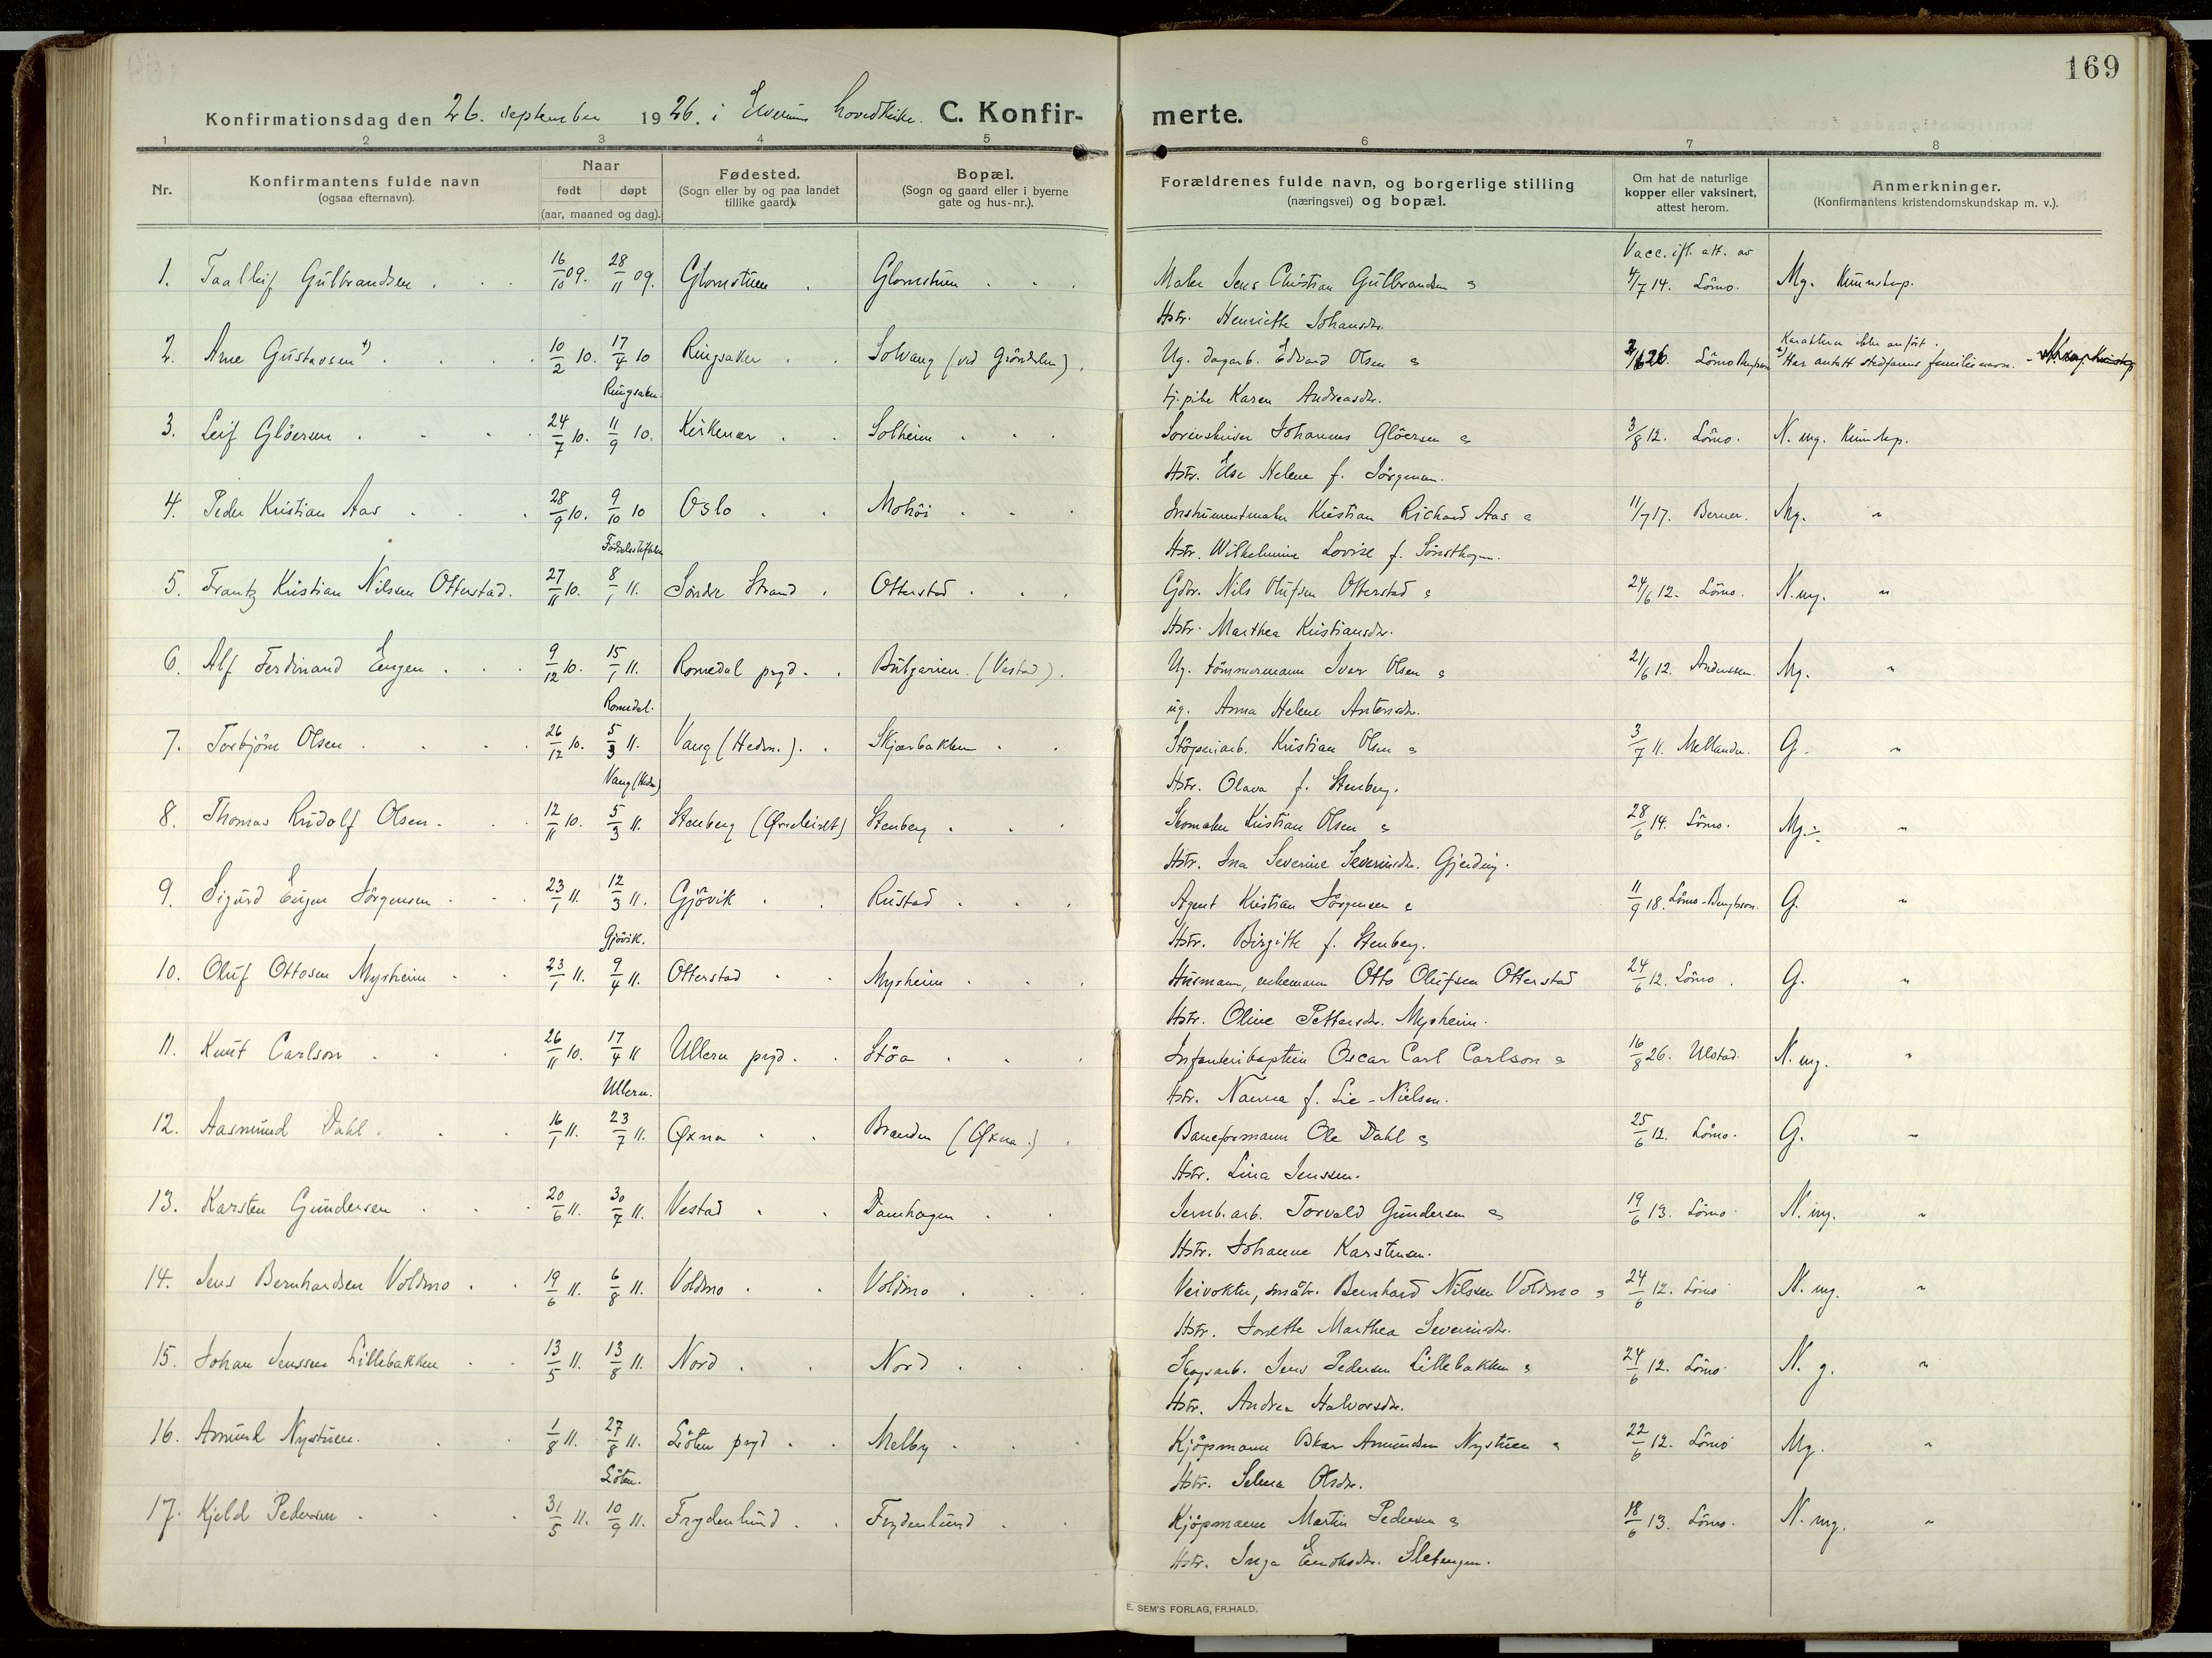 169
Konfirmationsdag den 26. september 1926. i Elverum hovedkirke. C. Konfir-merte.
1 2 3 4 5 6 7 8
Nr.
Konfirmantens fulde navn
(ogsaa efternavn).
Naar
født døpt
(aar, maaned og dag).
Fødested.
(Sogn eller by og paa landet
tillike gaard).
Bopæl.
(Sogn og gaard eller i byerne
gate og hus-nr.).
Forældrenes fulde navn, og borgerlige stilling
(næringsvei) og bopæl.
Om hat de naturlige
kopper eller vaksinert,
attest herom.
Anmerkninger.
(Konfirmantens kristendomskundskap m. v.).
Vacc. ifl. att. av
1. Taalleif Gulbrandsen 16/10 09. 28/11 09. Glomstuen Glomstuen Maler Jens Christian Gulbrandsen & 4/7 14. Lömo. Mg. Kunnskap.
Hstr. Henriette Johansdr.
Karakteren ikke anført.
2. Arne Gustavsen +) 10/2 10. 17/4 10 Ringsaker Solvang (vid Gröndalen). Ug. dagarb. Edvard Olsen & 2/6 26. Lömo +) Har antatt stedfarens familienavn.
Ringsaker. tj.pike Karen Andreasdr.
3. Leif Glöersen 24/7 10. 11/9 10. Kirkenær Solheim Sorenskriver Johannes Glöersen & 3/8 12. Lömo. N. mg. Kunnskp.
Hstr. Else Helene f. Jörgensen.
4. Peder Kristian Aas 28/9 10. 9/10 10 Oslo Mohöi Instrumentmaker Kristian Richard Aas & 11/7 17. Berner. Mg. "
Fødselsstiftelsen Hstr. Wilhelmine Lovise f. Sönsthagen.
5. Frantz Kristian Nilsen Otterstad. 27/11 10. 8/1 11. Söndre Strand Otterstad Gdbr. Nils Olufsen Otterstad & 24/6 12. Lömo. N. mg. "
Hstr. Marthea Kristiansdr.
6. Alf Ferdinand Engen 9/12 10. 15/1 11. Romedal prgd. Bulgarien (Vestad). Ug. tömmermann Ivar Olsen & 21/6 12. Anderssen. Mg. "
Romedal. ug. Anna Helene Antonsdr.
7. Torbjörn Olsen 26/12 10. 5/3 11. Vang (Hedm.). Skjærbakken Stöperiarb. Kristian Olsen & 3/7 11. Mellander. G. "
Vang (Hedm) Hstr. Olava f. Stenberg.
8. Thomas Rudolf Olsen. 12/11 10. 5/3 11. Stenberg Stenberg Skomaker Kristian Olsen & 28/6 14. Lömo. Mg.÷ "
Hstr. Ina Severine Severinsdr. Gjerding.
9. Sigurd Eugen Jörgensen 23/1 11. 12/3 11. Gjövik Rustad Agent Kristian Jörgensen & 11/9 18. Lömo-Bengtson. G. "
Gjövik. Hstr. Birgitte f. Stenberg.
10. Oluf Ottosen Myrheim 23/1 11. 9/4 11. Otterstad Myrheim Husmann, enkemann Otto Olufsen Otterstad 24/6 12. Lömo. G. "
Hstr. Oline Pettersdr. Myrheim.
11. Knut Carlson 26/11 10. 17/4 11 Ullern prgd. Stöa Infanterikaptein Oscar Carl Carlson & 16/8 26. Ulstad. N. mg. "
Ullern. Hstr. Nanna f. Lie-Nielsen.
12. Aasmund Dahl 16/1 11. 23/7 11. Øxna Branden (Øxna.) Baneformann Ole Dahl & 25/6 12. Lömo. G. "
Hstr. Lina Jenssen.
13. Karsten Gundersen 20/6 11. 30/7 11. Vestad Damhagen Jernb.arb. Torvald Gundersen & 19/6 13. Lömo. N. mg. "
Hstr. Johanne Karstensen.
14. Jens Bernhardsen Voldmo 19/6 11. 6/8 11. Voldmo Voldmo Veivokter, småbr. Bernhard Nilssen Voldmo & 24/6 12. Lömo N. mg. "
Hstr. Josette Marthea Severinsdr.
15. Johan Jenssen Lillebakken 13/5 11. 13/8 11. Nord Nord Skogsarb. Jens Pedersen Lillebakken & 24/6 12. Lömo N. g. "
Hstr. Andrea Halvorsdr.
16. Amund Nystuen 1/8 11. 27/8 11. Löten prgd Melby Kjöpmann Oskar Amundsen Nystuen & 22/6 12. Lömo Mg. "
Löten. Hstr. Selma Olsdr.
17. Kjeld Pedersen 31/5 11. 10/9 11. Frydenlund Frydenlund Kjöpmann Martin Pedersen & 18/6 13. Lömo. N. mg. "
Hstr. Inga Enoksdr. Sletengen.
E. SEM'S FORLAG, FR.HALD.